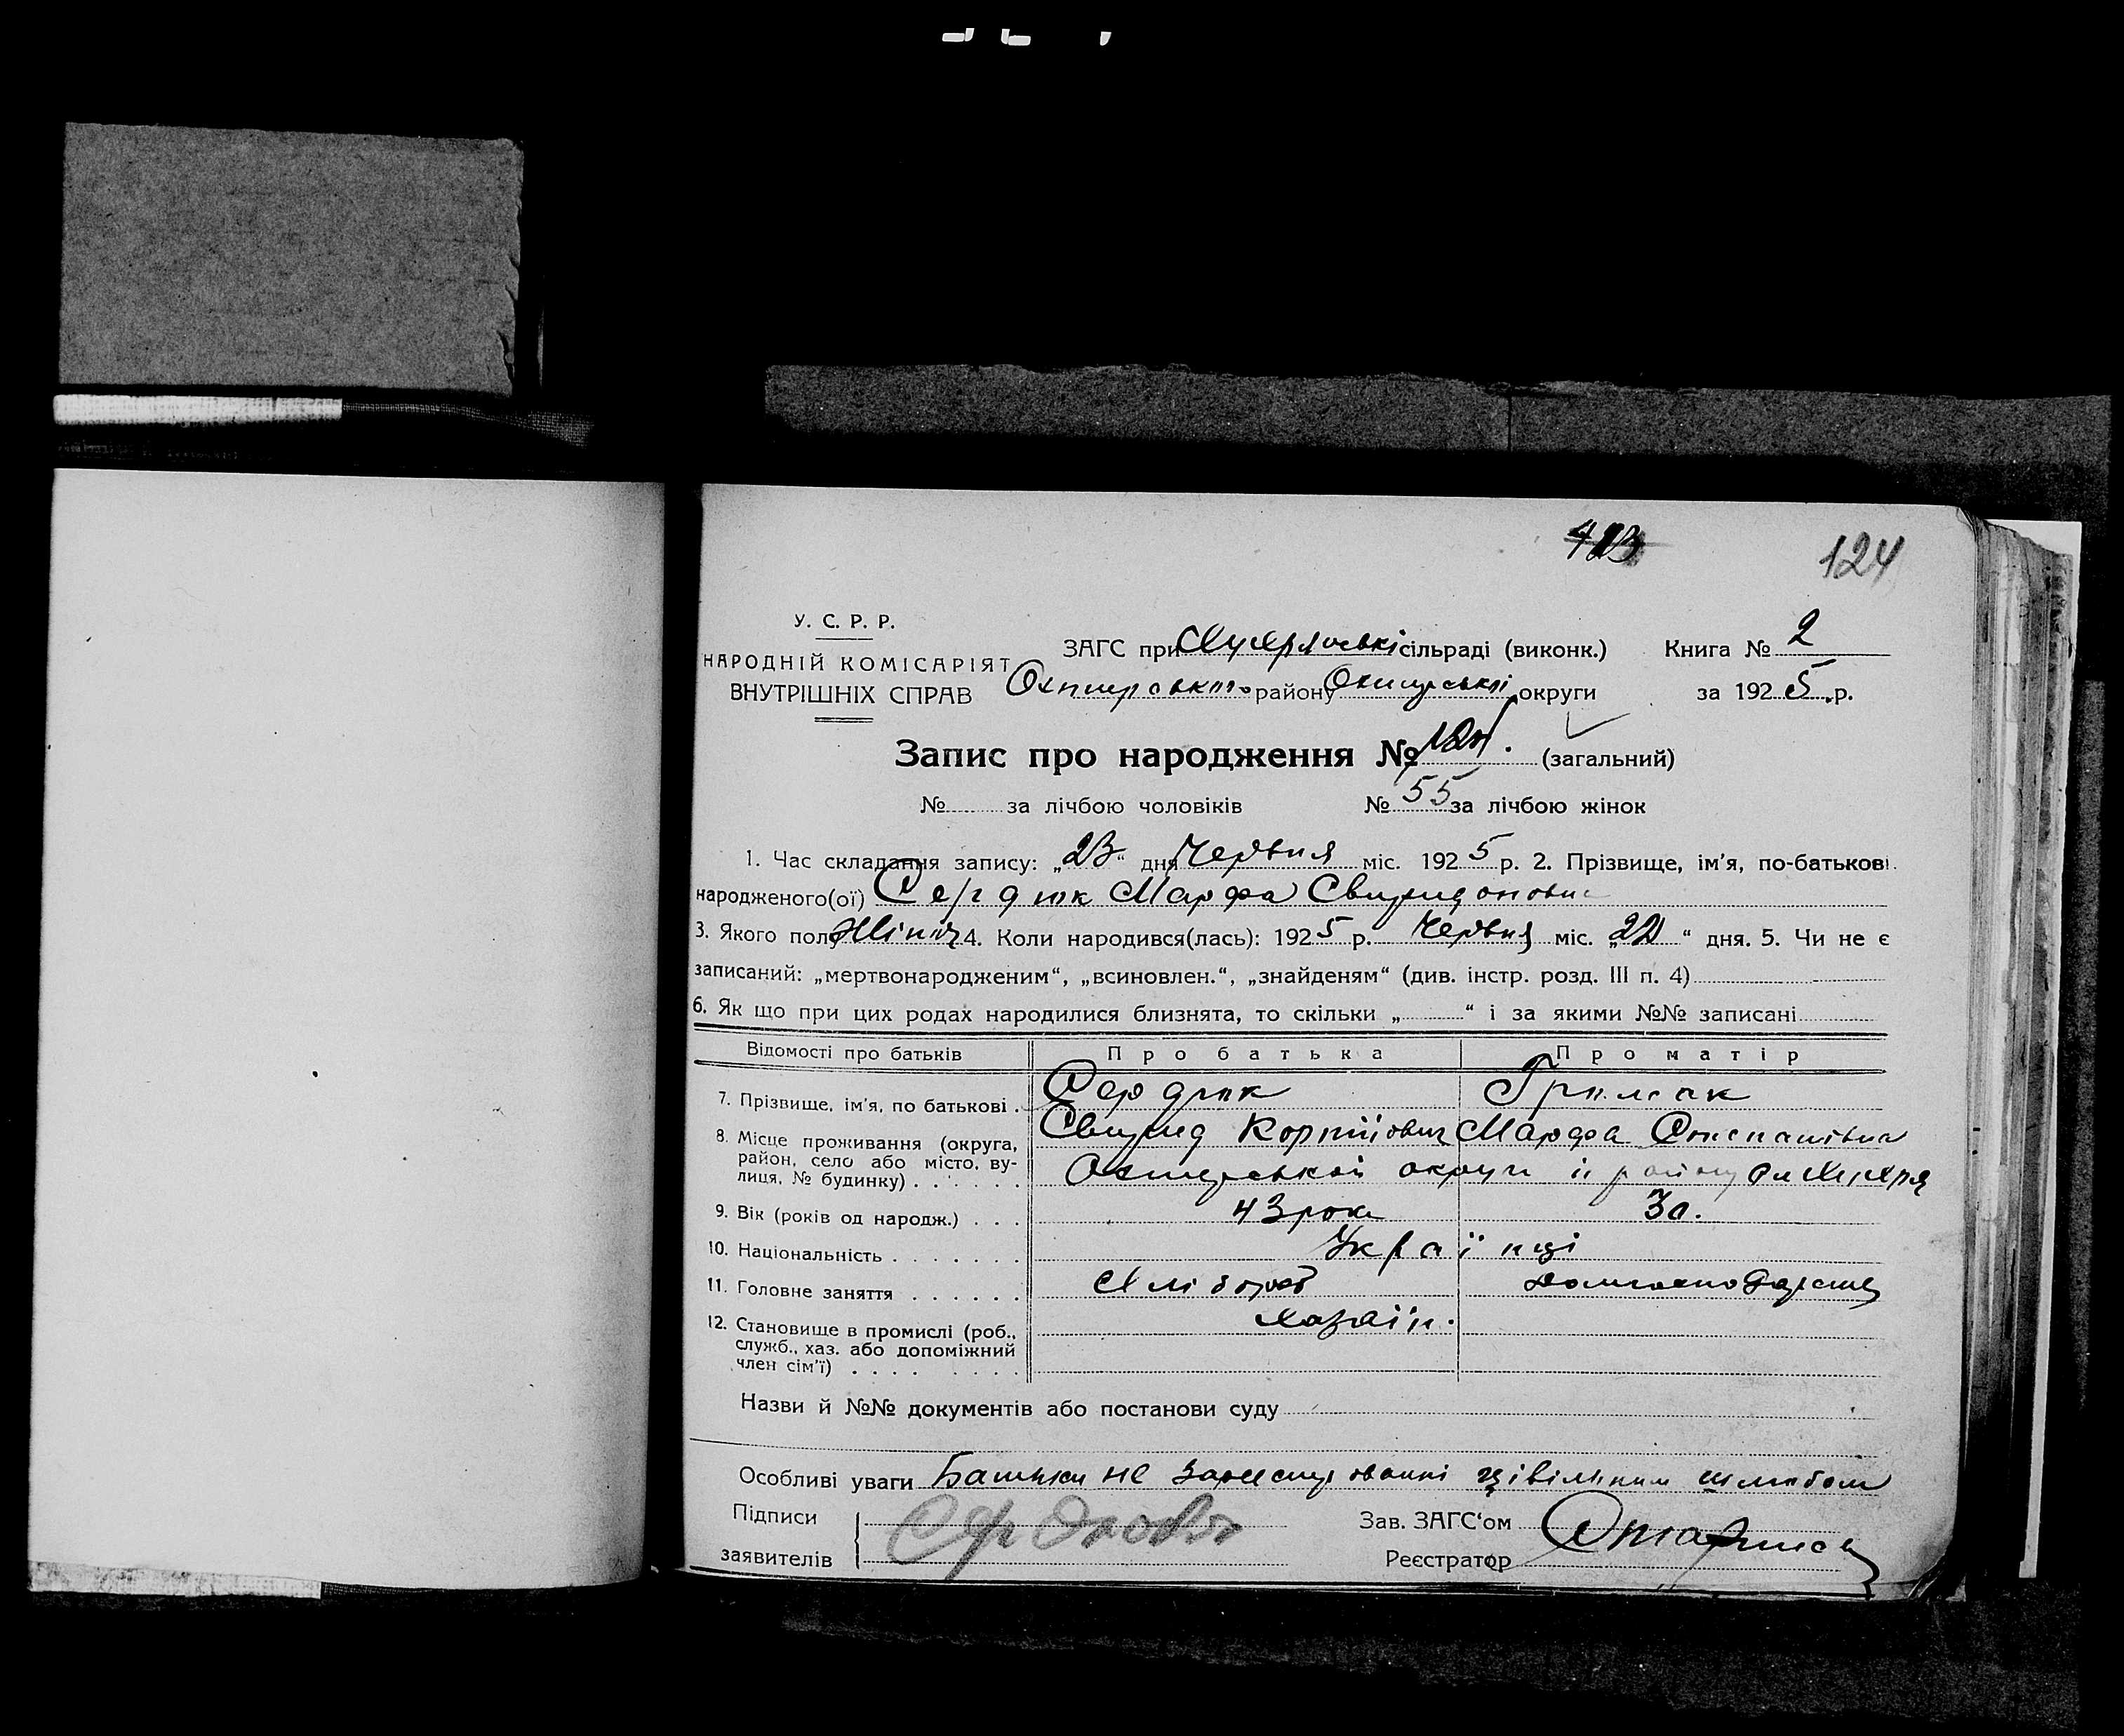 124
У. С. Р. Р.
НАРОДНІЙ КОМІСАРІЯТ
ВНУТРІШНІХ СПРАВ
ЗАГС при сільраді (виконк.) Книга № 2
району округи за 1925 р.
Запис про народження № (загальний)
№ за лічбою чоловіків № 55 за лічбою жінок
1. Час складання запису: „23“ дня Червня міс. 1925 р. 2. Прізвище, ім'я, по-батькові
народженого(ої) Сердюк Марфа
3. Якого полу 4. Коли народився(лась): 1925 р. Червня міс. „ “ дня. 5. Чи не є
записаний: „мертвонародженим“, „всиновлен.“, „знайденям“ (див. інстр. розд. III п. 4)
6. Як що при цих родах народилися близнята, то скільки „ “ і за якими №№ записані
Відомості про батьків Про батька Про матір
7. Прізвище, ім'я, по батькові Сердюк
Свирид Марфа
8. Місце проживання (округа,
район, село або місто, ву-
лиця, № будинку) округи району
9. Вік (років од народж.) 43 роки 30.
10. Національність Українці
11. Головне заняття Хлібороб
12. Становище в промислі (роб.,
служб., хаз. або допоміжний
член сім'ї) хазяїн.
Назви й №№ документів або постанови суду
Особливі уваги Батьки не цівільним шлюбом
Підписи
заявителів
Зав. ЗАГС'ом
Реєстратор